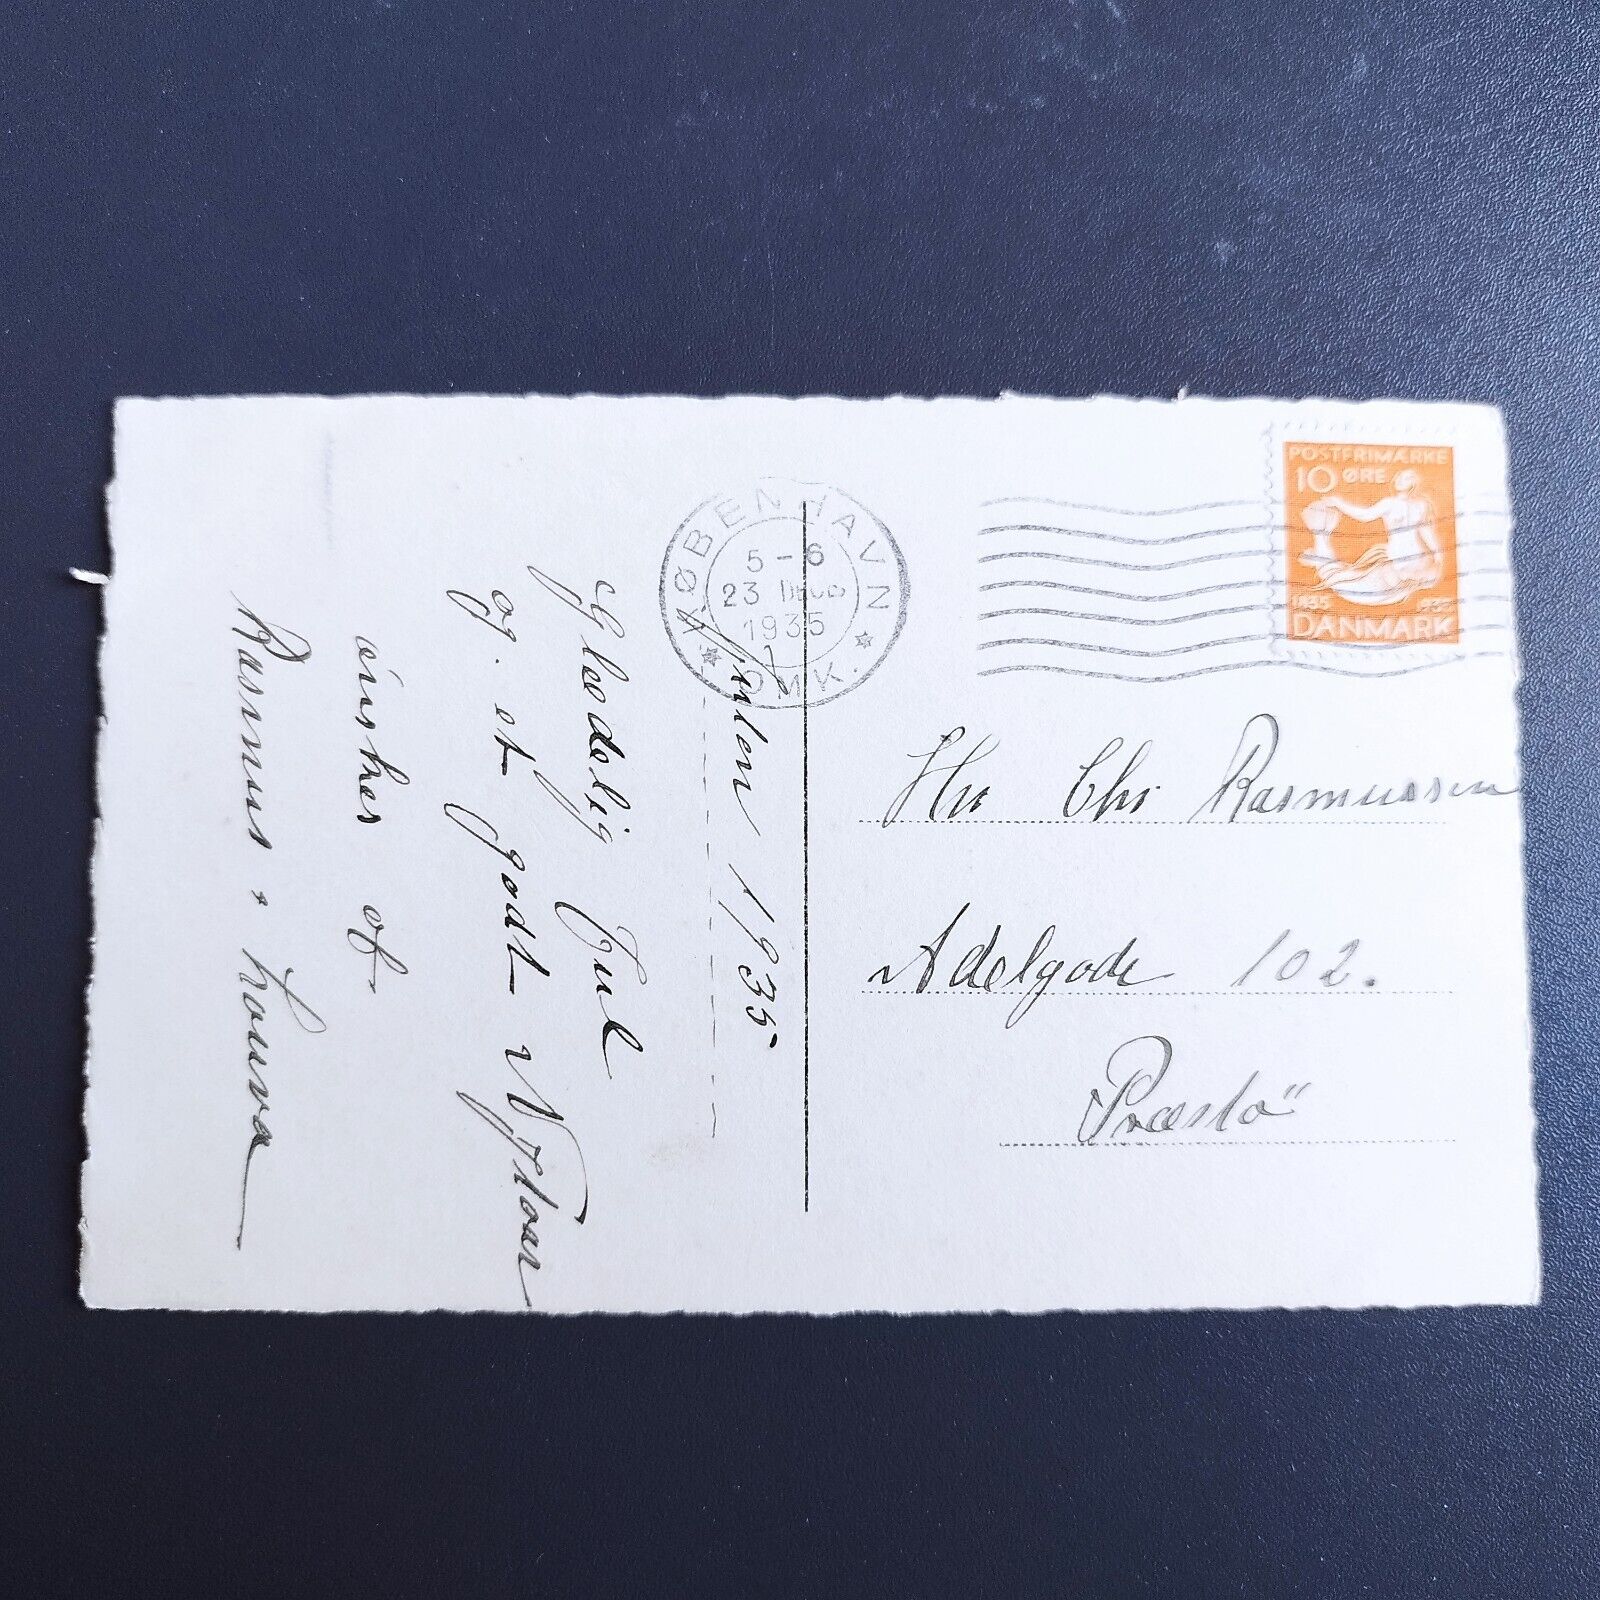 Julen 1935
Glædelig Jul
og et godt Nytaar
ønskes af
Rasmus &
KØBENHAVN
5-6
23 DEC
1935
OMK.
POSTFRIMÆRKE
10 ØRE
1835 1935
DANMARK
Hr Chr Rasmussen
Adelgade 102.
"Præstø"